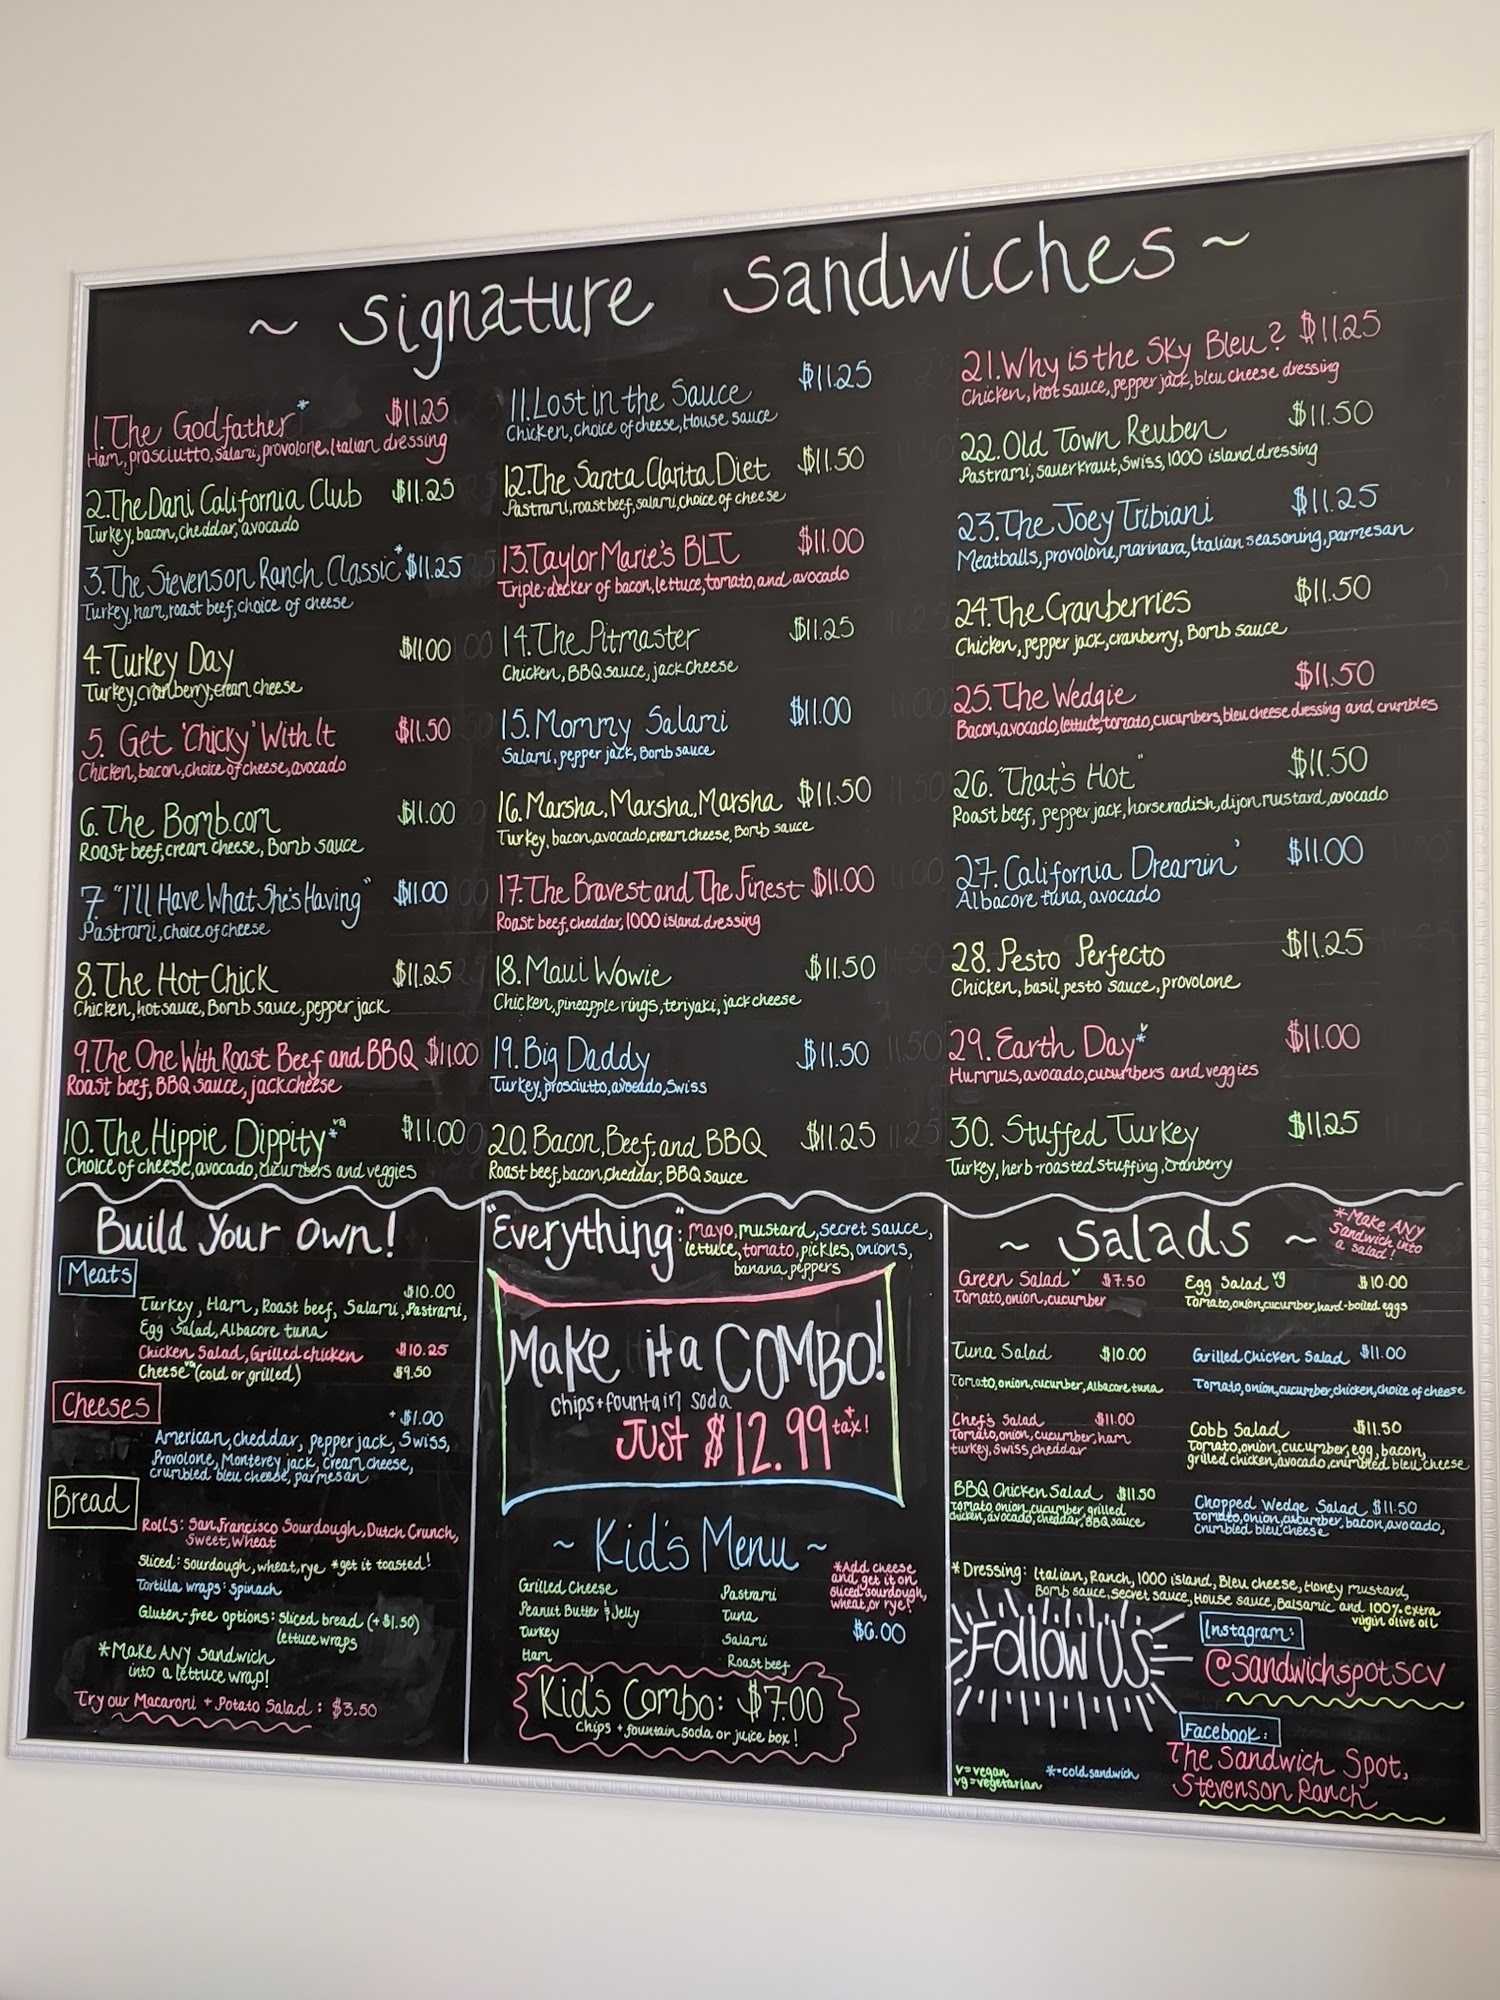 ~ Signature Sandwiches ~
1. The Godfather* $11.25
Ham, prosciutto, salami, provolone, Italian dressing
2. The Dani California Club $11.25
Turkey, bacon, cheddar, avocado
3. The Stevenson Ranch Classic* $11.25
Turkey, ham, roast beef, choice of cheese
4. Turkey Day $11.00
Turkey, cranberry, cream cheese
5. Get 'Chicky' With It $11.50
Chicken, bacon, choice of cheese, avocado
6. The Bomb.com $11.00
Roast beef, cream cheese, Bomb sauce
7. "I'll Have What She's Having" $11.00
Pastrami, choice of cheese
8. The Hot Chick $11.25
Chicken, hot sauce, Bomb sauce, pepper jack
9. The One With Roast Beef and BBQ $11.00
Roast beef, BBQ sauce, jack cheese
10. The Hippie Dippity* vg $11.00
Choice of cheese, avocado, cucumbers and veggies
11. Lost in the Sauce $11.25
Chicken, choice of cheese, House sauce
12. The Santa Clarita Diet $11.50
Pastrami, roast beef, salami, choice of cheese
13. Taylor Marie's BLT $11.00
Triple-decker of bacon, lettuce, tomato, and avocado
14. The Pitmaster $11.25
Chicken, BBQ sauce, jack cheese
15. Mommy Salami $11.00
Salami, pepper jack, Bomb sauce
16. Marsha, Marsha, Marsha $11.50
Turkey, bacon, avocado, cream cheese, Bomb sauce
17. The Bravest and The Finest $11.00
Roast beef, cheddar, 1000 island dressing
18. Maui Wowie $11.50
Chicken, pineapple rings, teriyaki, jack cheese
19. Big Daddy $11.50
Turkey, prosciutto, avocado, Swiss
20. Bacon, Beef, and BBQ $11.25
Roast beef, bacon, cheddar, BBQ sauce
21. Why is the Sky Bleu? $11.25
Chicken, hot sauce, pepper jack, bleu cheese dressing
22. Old Town Reuben $11.50
Pastrami, sauerkraut, Swiss, 1000 island dressing
23. The Joey Tribiani $11.25
Meatballs, provolone, marinara, Italian seasoning, parmesan
24. The Cranberries $11.50
Chicken, pepper jack, cranberry, Bomb sauce
25. The Wedgie $11.50
Bacon, avocado, lettuce, tomato, cucumbers, bleu cheese dressing and crumbles
26. "That's Hot" $11.50
Roast beef, pepper jack, horseradish, dijon mustard, avocado
27. California Dreamin' $11.00
Albacore tuna, avocado
28. Pesto Perfecto $11.25
Chicken, basil pesto sauce, provolone
29. Earth Day* v $11.00
Hummus, avocado, cucumbers and veggies
30. Stuffed Turkey $11.25
Turkey, herb-roasted stuffing, cranberry
Build Your Own!
Meats
$10.00
Turkey, Ham, Roast beef, Salami, Pastrami,
Egg Salad, Albacore tuna
Chicken Salad, Grilled chicken $10.25
Cheese vg (cold or grilled) $9.50
Cheeses
+ $1.00
American, cheddar, pepper jack, Swiss,
Provolone, Monterey jack, cream cheese,
crumbled bleu cheese, parmesan
Bread
Rolls: San Francisco Sourdough, Dutch Crunch,
Sweet, Wheat
Sliced: sourdough, wheat, rye *get it toasted!
Tortilla wraps: spinach
Gluten-free options: sliced bread (+$1.50)
lettuce wraps
*Make ANY sandwich
into a lettuce wrap!
Try our Macaroni + Potato Salad: $3.50
"Everything": mayo, mustard, secret sauce,
lettuce, tomato, pickles, onions,
banana peppers
Make it a COMBO!
chips + fountain soda
Just $12.99 + tax!
~ Kid's Menu ~
Grilled Cheese
Peanut Butter & Jelly
Turkey
Ham
Pastrami
Tuna
Salami
Roast beef
*Add cheese
and get it on
sliced sourdough,
wheat, or rye!
$6.00
Kid's Combo: $7.00
Chips + fountain soda or juice box!
~ Salads ~
*Make ANY
Sandwich into
a salad!
Green Salad v $7.50
Tomato, onion, cucumber
Egg Salad vg $10.00
Tomato, onion, cucumber, hard-boiled eggs
Tuna Salad $10.00
Tomato, onion, cucumber, Albacore tuna
Grilled Chicken Salad $11.00
Tomato, onion, cucumber, chicken, choice of cheese
Chef's Salad $11.00
Tomato, onion, cucumber, ham
turkey, swiss, cheddar
Cobb Salad $11.50
Tomato, onion, cucumber, egg, bacon,
grilled chicken, avocado, crumbled bleu cheese
BBQ Chicken Salad $11.50
Tomato onion, cucumber, grilled
chicken, avocado, cheddar, BBQ sauce
Chopped Wedge Salad $11.50
Tomato, onion, cucumber, bacon, avocado,
Crumbled bleu cheese
*Dressing: Italian, Ranch, 1000 island, Bleu cheese, Honey mustard,
Bomb sauce, Secret sauce, House sauce, Balsamic and 100% extra
virgin olive oil
Follow US
Instagram:
@sandwichspotscv
Facebook:
The Sandwich Spot,
Stevenson Ranch
v=vegan
vg=vegetarian
*=cold sandwich